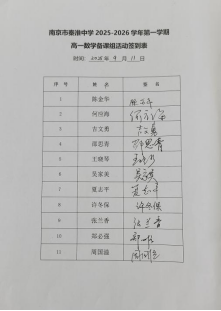 南京市秦淮中学 2025-2026 学年第一学期
高一数学备课组活动签到表
时间: 2025 年 9 月 11 日
序号 姓名 签名
1 陈金华 陈金华
2 何招海 何招海
3 古文勇 古文勇
4 邵思青 邵思青
5 王晓琴 王晓琴
6 吴家美
7 夏志平 夏志平
8 许冬保 许冬保
9 张兰香 张兰香
10 郑必强
11 周国强 周国强